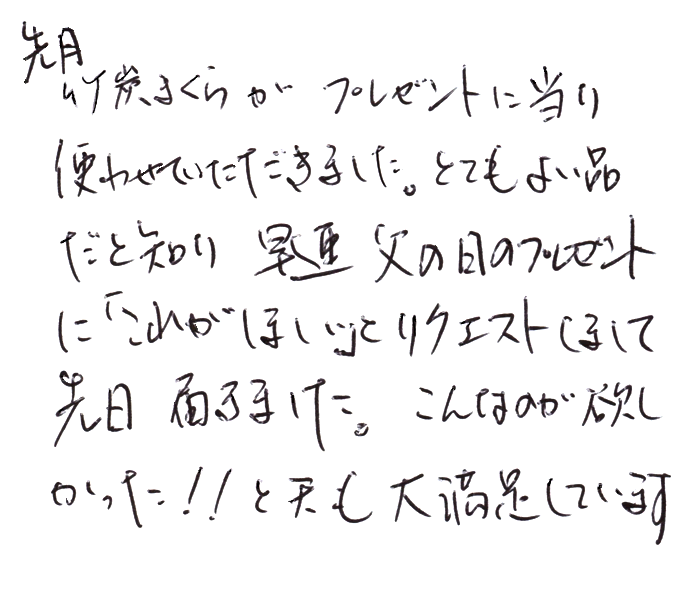 先月
竹炭まくらが プレゼントに当り
使わせていただきました。とてもよい品
だと知り 早速 父の日のプレゼント
に「これがほしい」とリクエストしまして
先日 届きました。こんなのが欲し
かった!!と夫も大満足しています